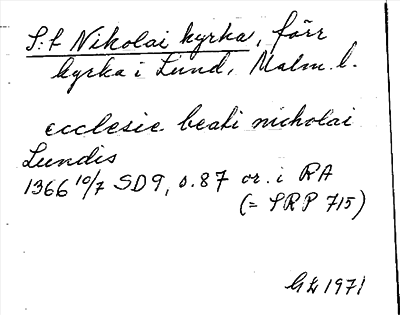 S:t Nikolai kyrka, förr
kyrka i Lund, Malm. l.
ecclesie beati nicholai
Lundis
1366 10/7 SD 9, s. 87 or. i RA
(= SRP 715)
GL 1971